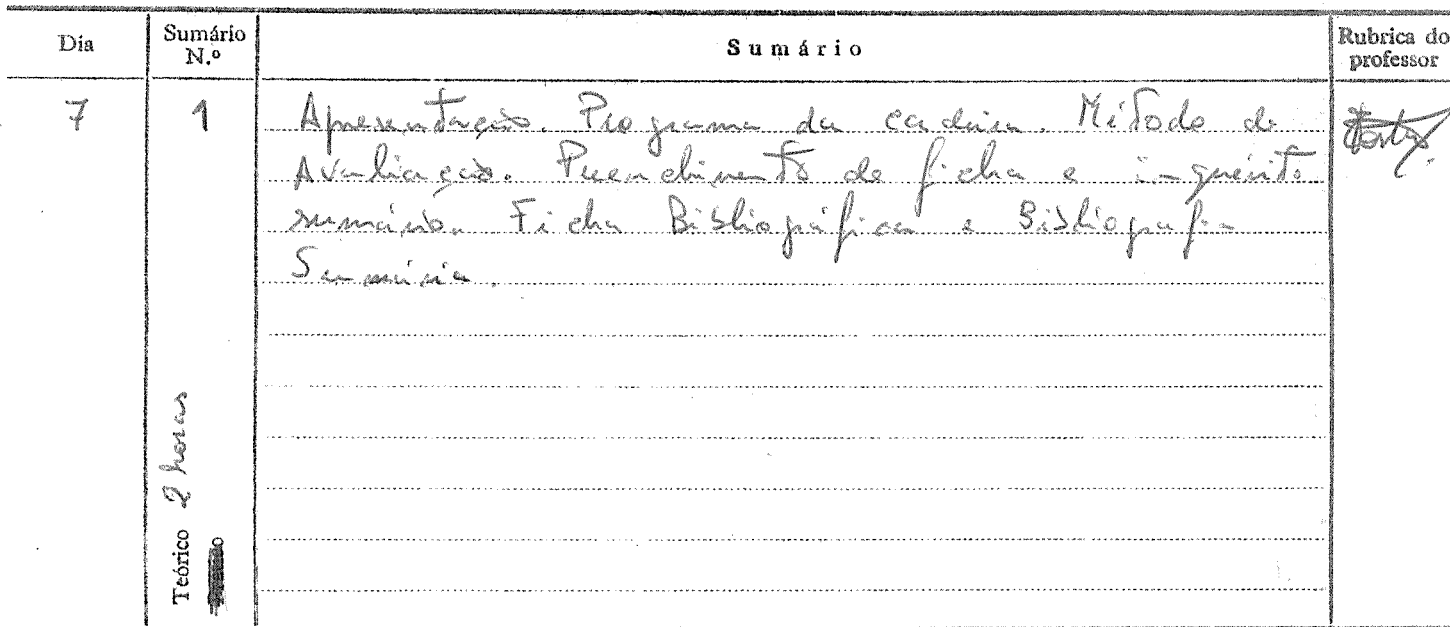 Dia
Sumário N.º
Sumário
Rubrica do professor
7
1
Apresentação. Programa da cadeira. Método de
Avaliação. Preenchimento de ficha e inquérito
sumário. Ficha Bibliográfica e Bibliografia
Sumária.
Teórico 2 horas